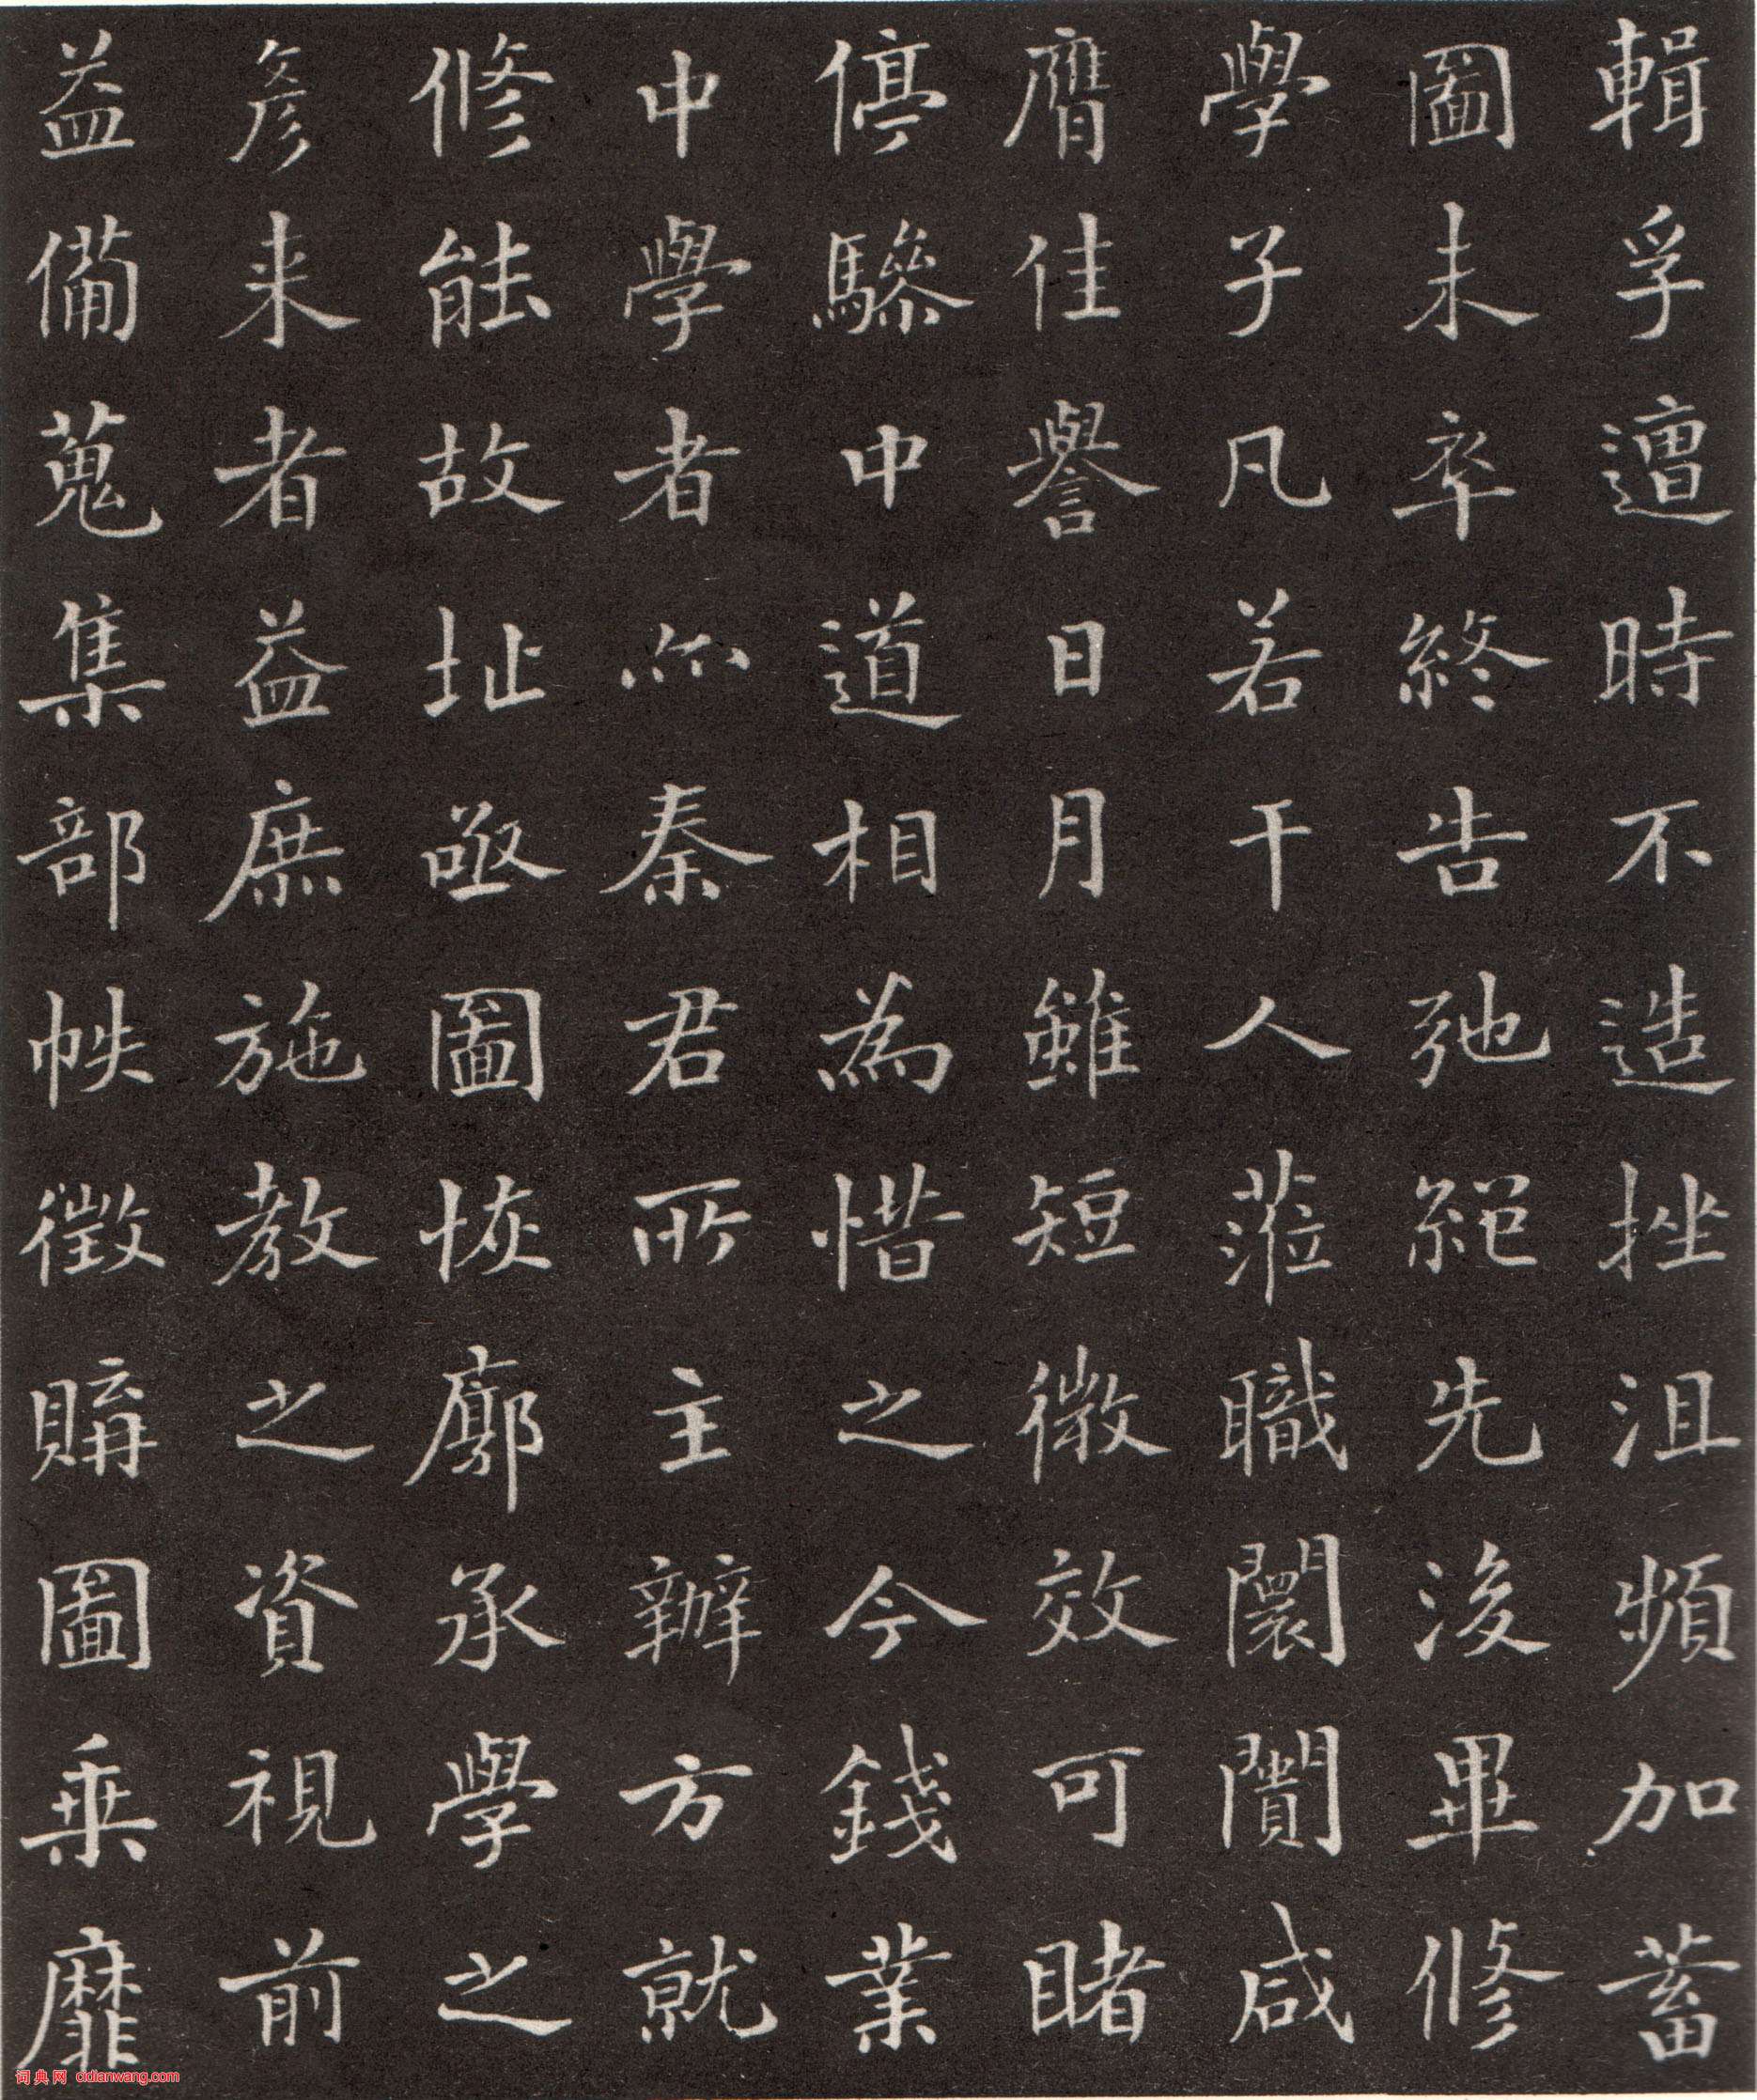 輯孚遭時不造挫沮頻加蓄
圖未卒終告弛絕先後畢修
學子凡若干人蒞職闤闠咸
膺佳譽日月雖短徵效可睹
停驂中道相為惜之今錢業
中學者亦秦君所主辦方就
修能故址亟圖恢廓承學之
彥来者益庶施教之資視前
益備蒐集部帙徵購圖乘靡
词典网 cidianwang.com